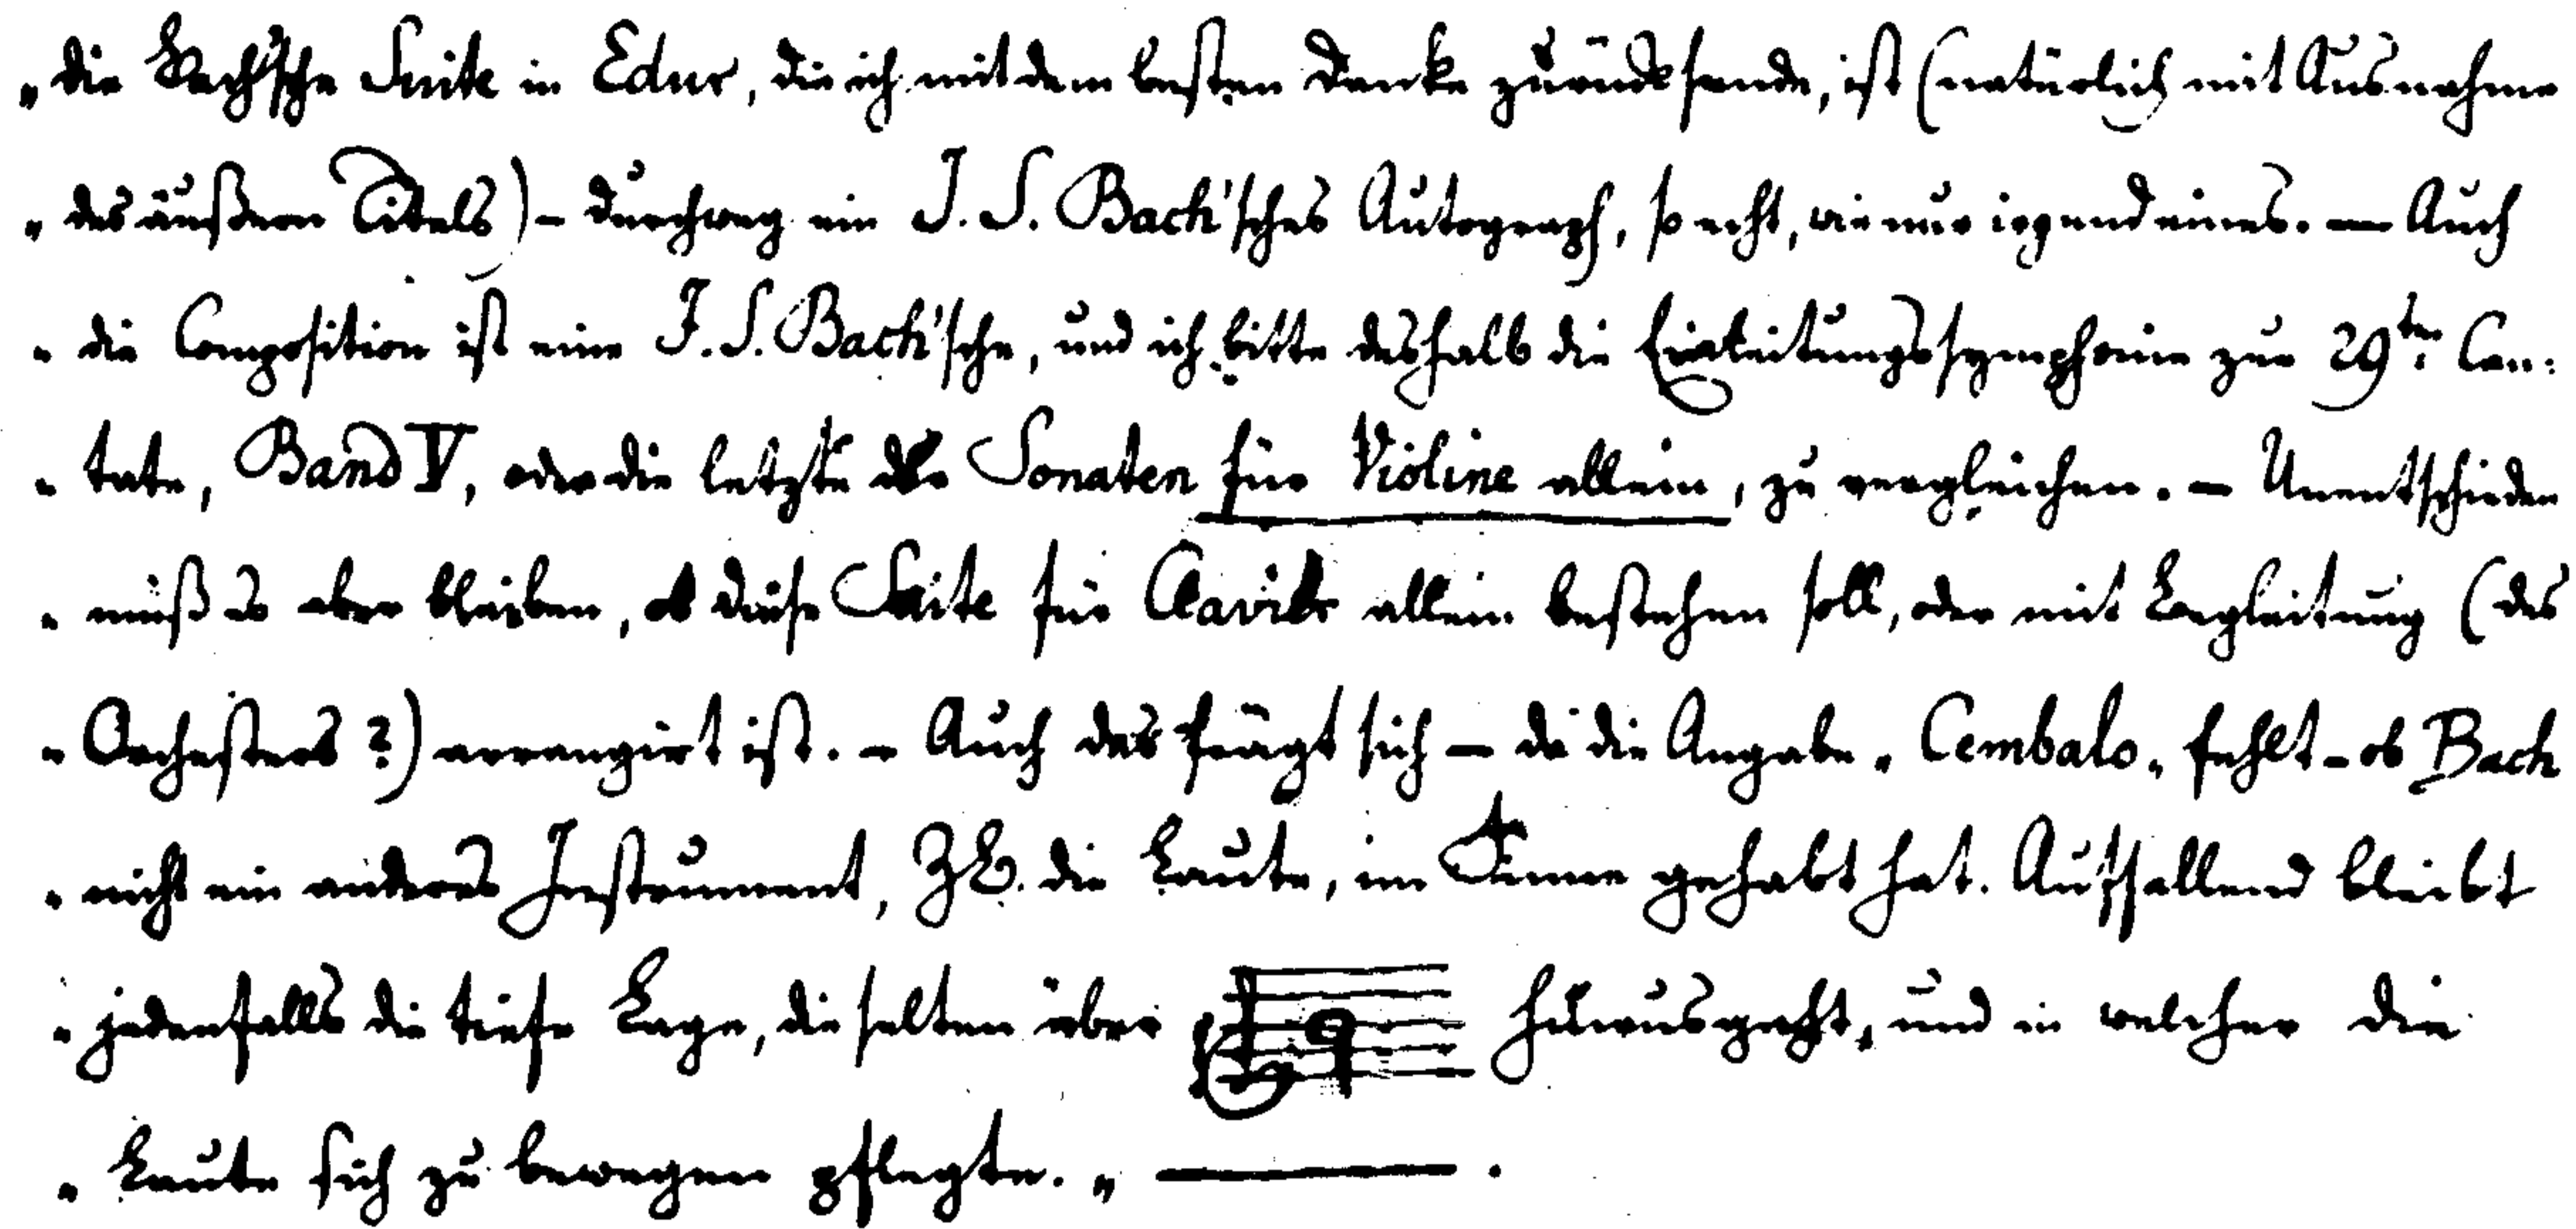 „die Bach'sche Suite in Edur, die ich mit dem besten Danke zurücksende, ist (natürlich mit Ausnahme
„ des äußern Titels) – durchweg ein J. S. Bach'sches Autograph, so echt, wie nur irgend eines. — Auch
„ die Composition ist eine J. S. Bach'sche, und ich bitte deshalb die Einleitungssymphonie zur 29ten Can:
„ tate, Band V, oder die letzte der Sonaten für Violine allein, zu vergleichen. – Unentschieden
„ muß es aber bleiben, ob diese Suite für Clavier allein bestehen soll, oder mit Begleitung (des
„ Orchesters?) arrangirt ist. – Auch das frägt sich – da die Angabe „Cembalo„ fehlt – ob Bach
„ nicht ein anderes Instrument, Z B. die Laute, im Sinne gehabt hat. Auffallend bleibt
„ jedenfalls die tiefe Lage, die selten über hinausgeht, und in welcher die
„ Laute sich zu bewegen pflegte.„ ——— .